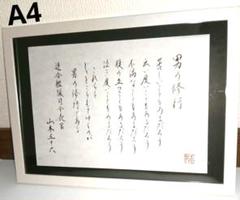 A4
男の修行
苦しいこともあるだろう
云い度いこともあるだろう
不満なこともあるだろう
腹の立つこともあるだろう
泣き度いこともあるだろう
これらを
じっとこらえてゆくのが
男の修行である
連合艦隊司令長官
山本五十六